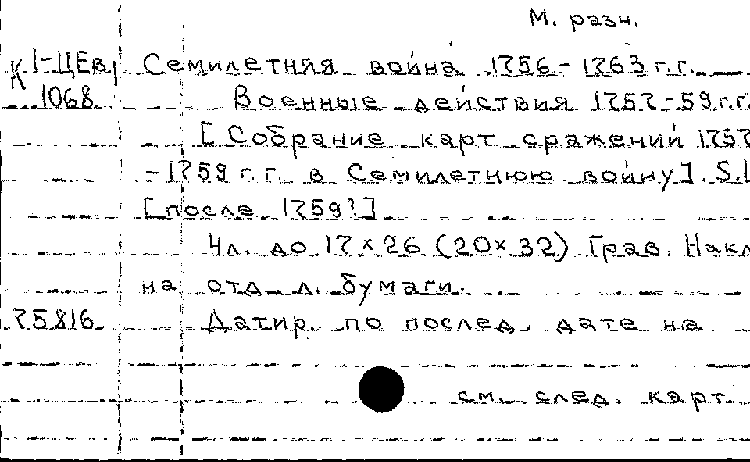 М. разн.
К 1-ЦЕв Семилетняя война 1756-1763 г.г.
1068 Военные действия 1757-59 г.г.
[Собрание карт сражений 1757
-1759 г.г. в Семилетнюю войну]. S.l
[после 1759?]
4л. до 17×26 (20×32) Грав. Накл
на отд. л. бумаги.
75816 Датир. по послед. дате на
см. след. карт